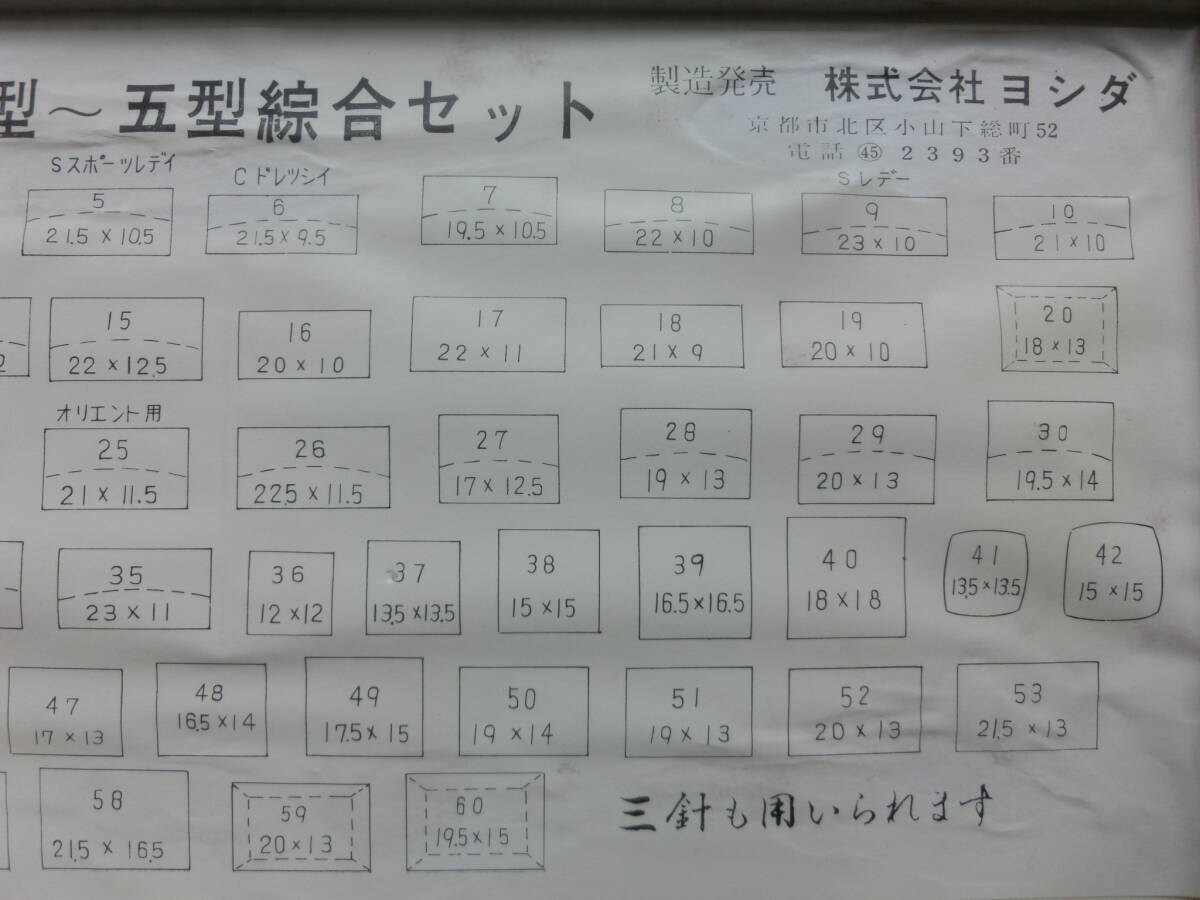 型～五型綜合セット
製造発売 株式会社ヨシダ
京都市北区小山下総町52
電話 ㊺ 2393番
Sスポーツレデイ
Cドレツシイ
Sレデー
5
21.5 × 10.5
6
21.5 × 9.5
7
19.5 × 10.5
8
22 × 10
9
23 × 10
10
21 × 10
2
15
22 × 12.5
16
20 × 10
17
22 × 11
18
21 × 9
19
20 × 10
20
18 × 13
オリエント用
25
21 × 11.5
26
22.5 × 11.5
27
17 × 12.5
28
19 × 13
29
20 × 13
30
19.5 × 14
35
23 × 11
36
12 × 12
37
13.5 × 13.5
38
15 × 15
39
16.5 × 16.5
40
18 × 18
41
13.5 × 13.5
42
15 × 15
47
17 × 13
48
16.5 × 14
49
17.5 × 15
50
19 × 14
51
19 × 13
52
20 × 13
53
21.5 × 13
58
21.5 × 16.5
59
20 × 13
60
19.5 × 15
三針も用いられます